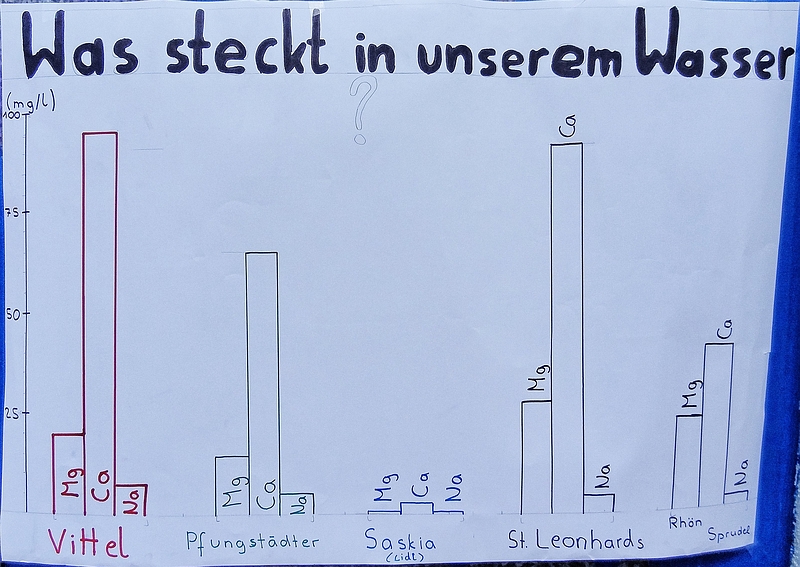 Was steckt in unserem Wasser
?
(mg/l)
100
75
50
25
Mg Ca Na
Mg Ca Na
Mg Ca Na
Mg Ca Na
Mg Ca Na
Vittel
Pfungstädter
Saskia
(Lidl)
St. Leonhards
Rhön
Sprudel